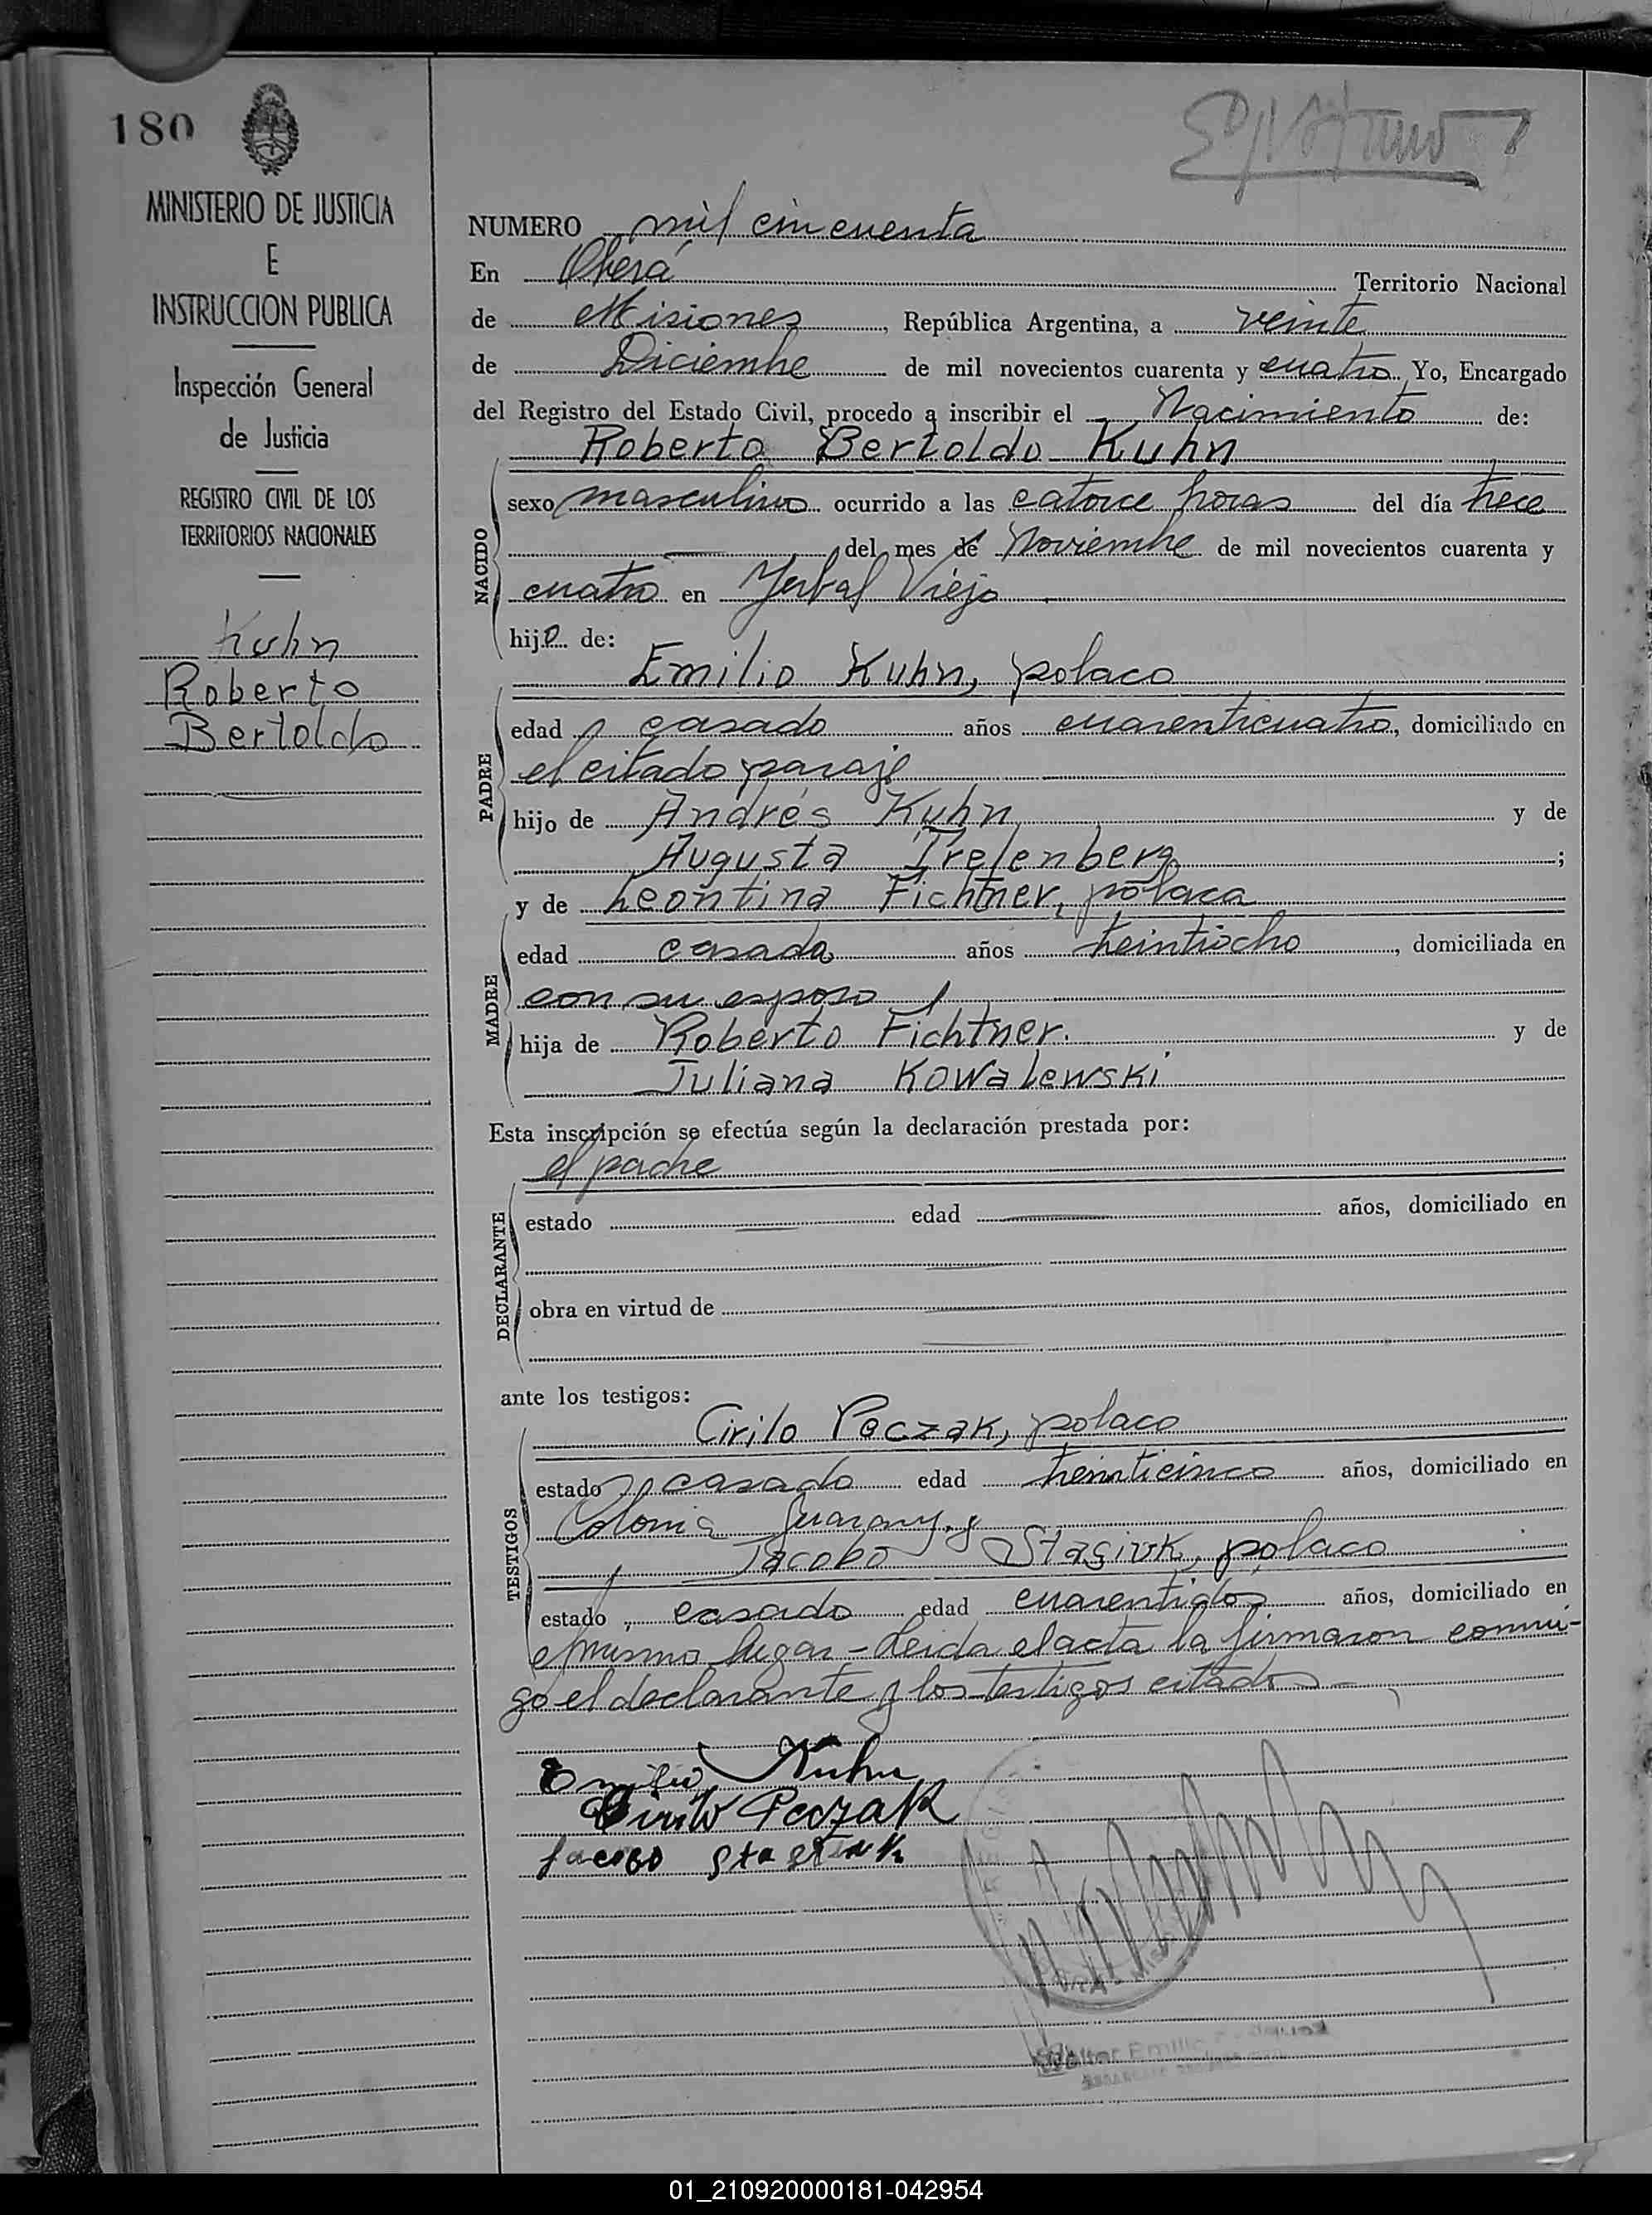 180
MINISTERIO DE JUSTICIA
E
INSTRUCCION PUBLICA
Inspección General
de Justicia
REGISTRO CIVIL DE LOS
TERRITORIOS NACIONALES
Kuhn
Roberto
Bertoldo
NUMERO mil cincuenta
En Oberá Territorio Nacional
de Misiones, República Argentina, a veinte
de Diciembre de mil novecientos cuarenta y cuatro Yo, Encargado
del Registro del Estado Civil, procedo a inscribir el Nacimiento de:
Roberto Bertoldo Kuhn
NACIDO
sexo masculino ocurrido a las catorce horas del día trece
del mes de Noviembre de mil novecientos cuarenta y
cuatro en Yerbal Viejo
hijo de:
Emilio Kuhn, polaco
PADRE
edad casado años cuarenticuatro, domiciliado en
el citado paraje
hijo de Andrés Kuhn y de
Augusta Trelenberg;
y de Leontina Fichtner, polaca
MADRE
edad casada años treintiocho, domiciliada en
con su esposo
hija de Roberto Fichtner. y de
Juliana Kowalewski
Esta inscripción se efectúa según la declaración prestada por:
el padre
DECLARANTE
estado edad años, domiciliado en
obra en virtud de
ante los testigos:
Cirilo Peczak, polaco
TESTIGOS
estado casado edad treinticinco años, domiciliado en
Colonia Guarany. y
Jacobo Stasiuk, polaco
estado casado edad cuarentidos años, domiciliado en
el mismo lugar - Leida el acta la firmaron conmi-
go el declarante y los testigos citados -
Emilio Kuhn
Cirilo Peczak
Jacobo Stasiuk
Walter Emilio
01_210920000181-042954